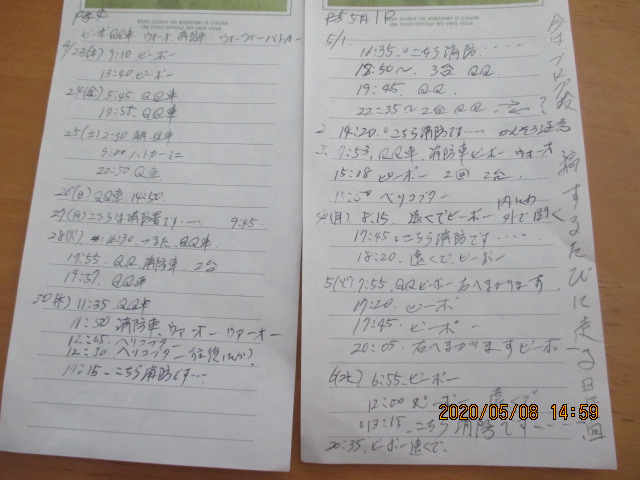 Mon coeur va exploser à cause
de mon amour en vers vous.
ピーポ QQ車 ウォーオ 消防車 ウォーウォーパトカー
4/23(木) 9:10 ピーポー
13:40 ピーポー
24(金) 5:45 QQ車
17:55. QQ車
25(土) 2:30 QQ車
9:00 パトカーミニ
20:50 Q車
26(日) QQ車 14:50.
27(月) こちらは消防署です…… 9:45.
28(火) 16:30 QQ車
17:55 QQ 消防車 2台
19:37. QQ車
30(木) 11:35 QQ車
11:50 消防車. ウァーオー ウァーオー
12:05. ヘリコプター
12:30 ヘリコプター 往復
17:15. こちら消防です…
Mon coeur va exploser à cause
de mon amour en vers vous.
5/1.
16:35. こちら消防....
18:50〜. 3台 QQ.
19:45. QQ.
22:35〜 2台 QQ
2. 14:20. こちら消防です……
3. 7:53. QQ車. 消防車 ピーポー ウォーオ
15:08 ピーポー 2回 2台.
ヘリコプター
4(月) 8:15. 遠くでピーポー 外で聞く
17:45. こちら消防です....
18:20. 遠くで. ピーポー
5(火) 7:55. QQ ピーポー 右へまがります.
17:20. ピーポ
17:45. ピーポー
20:05. 右へまがります ピーポー
6(水) 6:55 ピーポー
12:00 ピーポー 遠くで
13:15. こちら消防です....
20:35. ピーポー遠くで.
するたびに走る
2020/05/08 14:59